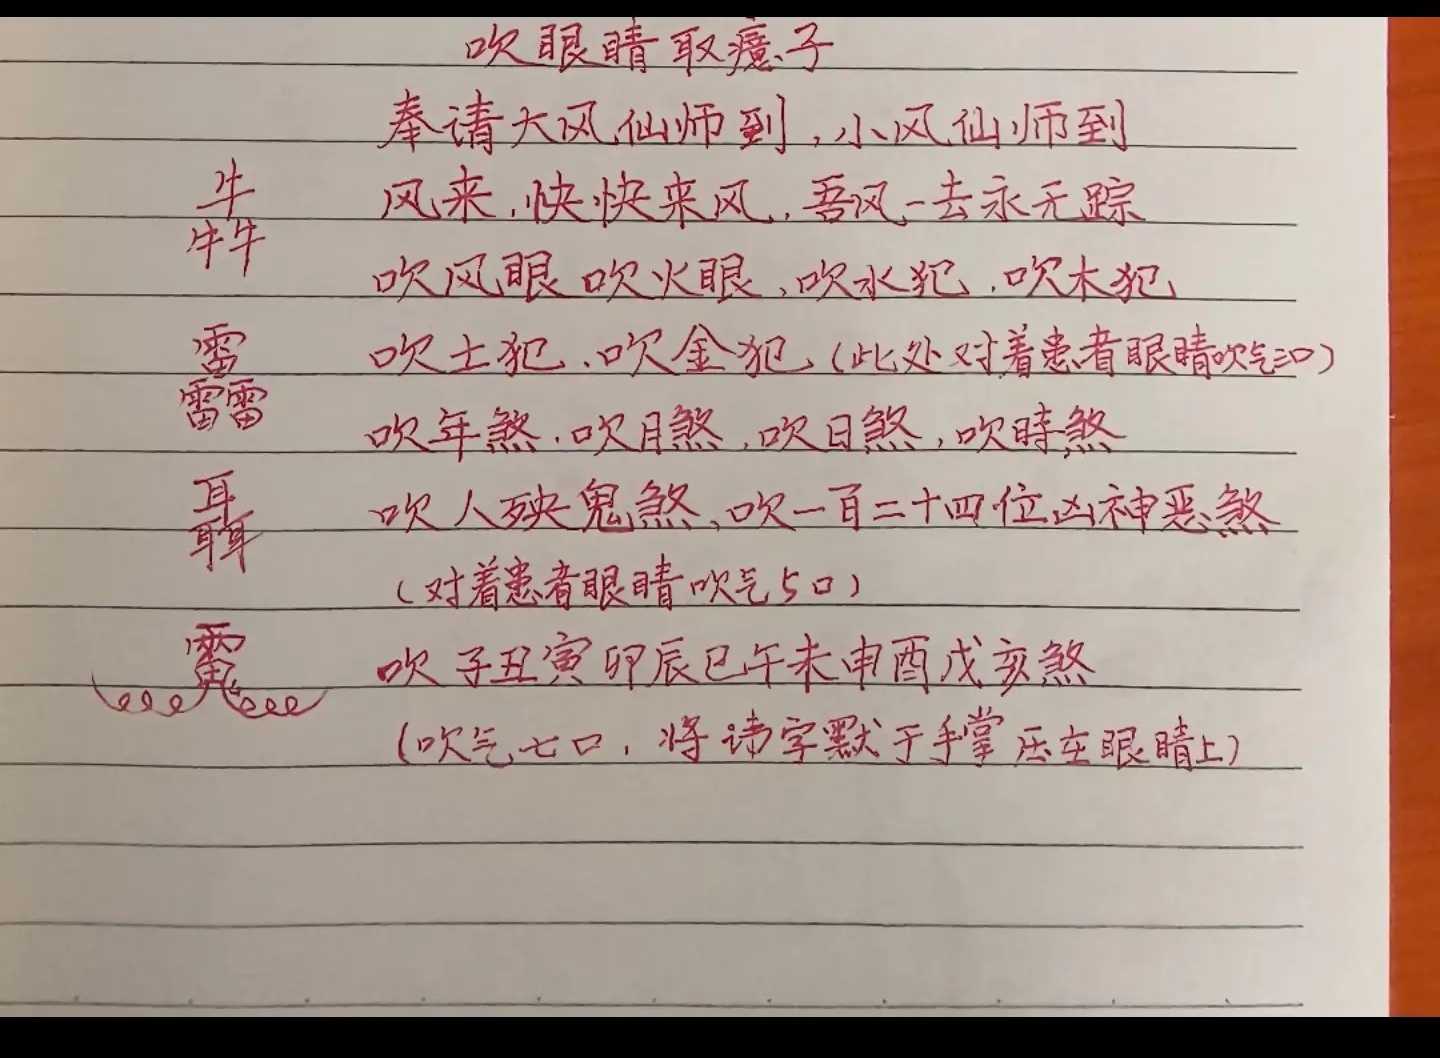 吹眼睛取瘾子
奉请大风仙师到，小风仙师到
风来，快快来风，吾风一去永无踪
吹风眼 吹火眼，吹水犯，吹木犯
吹土犯，吹金犯（此处对着患者眼睛吹气三口）
吹年煞，吹月煞，吹日煞，吹時煞
吹人殃鬼煞，吹一百二十四位凶神恶煞
（对着患者眼睛吹气5口）
吹子丑寅卯辰巳午未申酉戌亥煞
（吹气七口，将讳字默于手掌压在眼睛上）
牛
牛牛
雷
雷雷
耳
耳耳